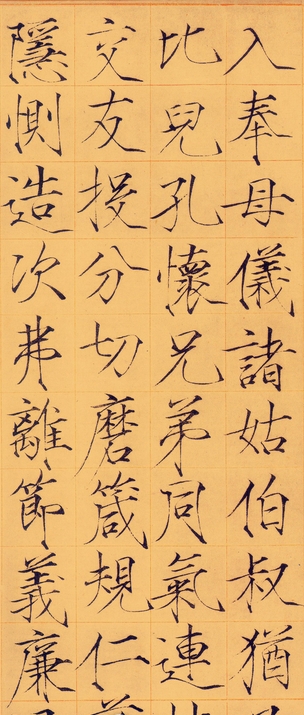 入奉母儀諸姑伯叔猶
比兒孔懷兄弟同氣連
交友投分切磨箴規仁
隱惻造次弗離節義廉